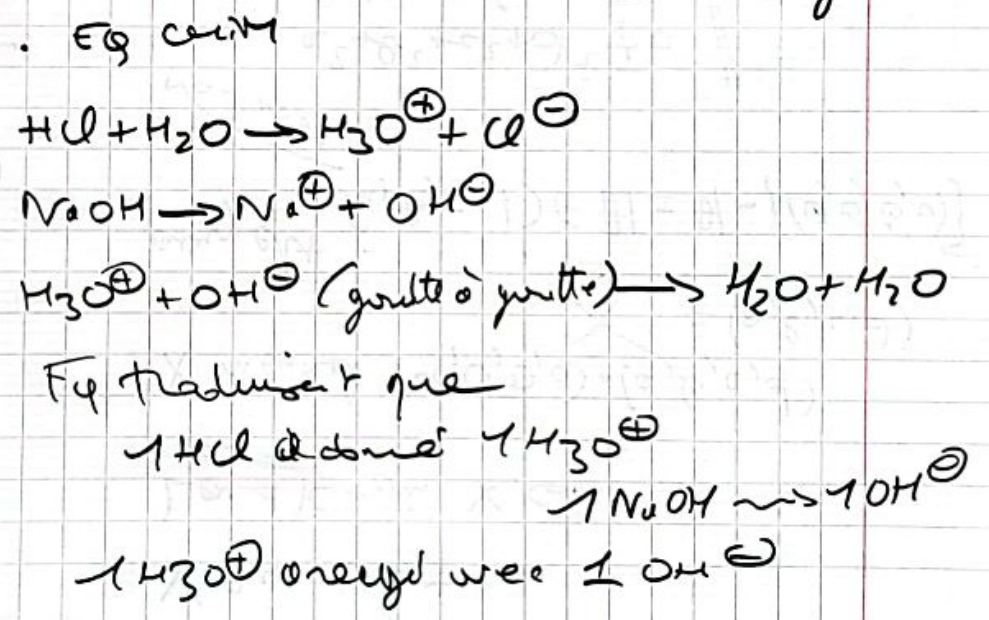 . Eq chim
HCl + H₂O → H₃O⊕ + Cl⊖
NaOH → Na⊕ + OH⊖
H₃O⊕ + OH⊖ (goutte à goutte) → H₂O + H₂O
Eq traduisant que
1 HCl a donné 1 H3O⊕
1 NaOH ⇝ 1 OH⊖
1 H3O⊕ a réagi avec 1 OH⊖